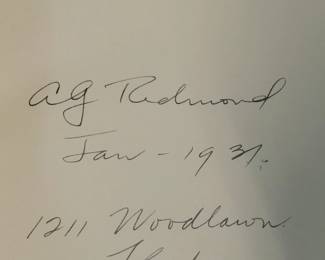 AG Redmond
Jan - 1931.
1211 Woodlawn